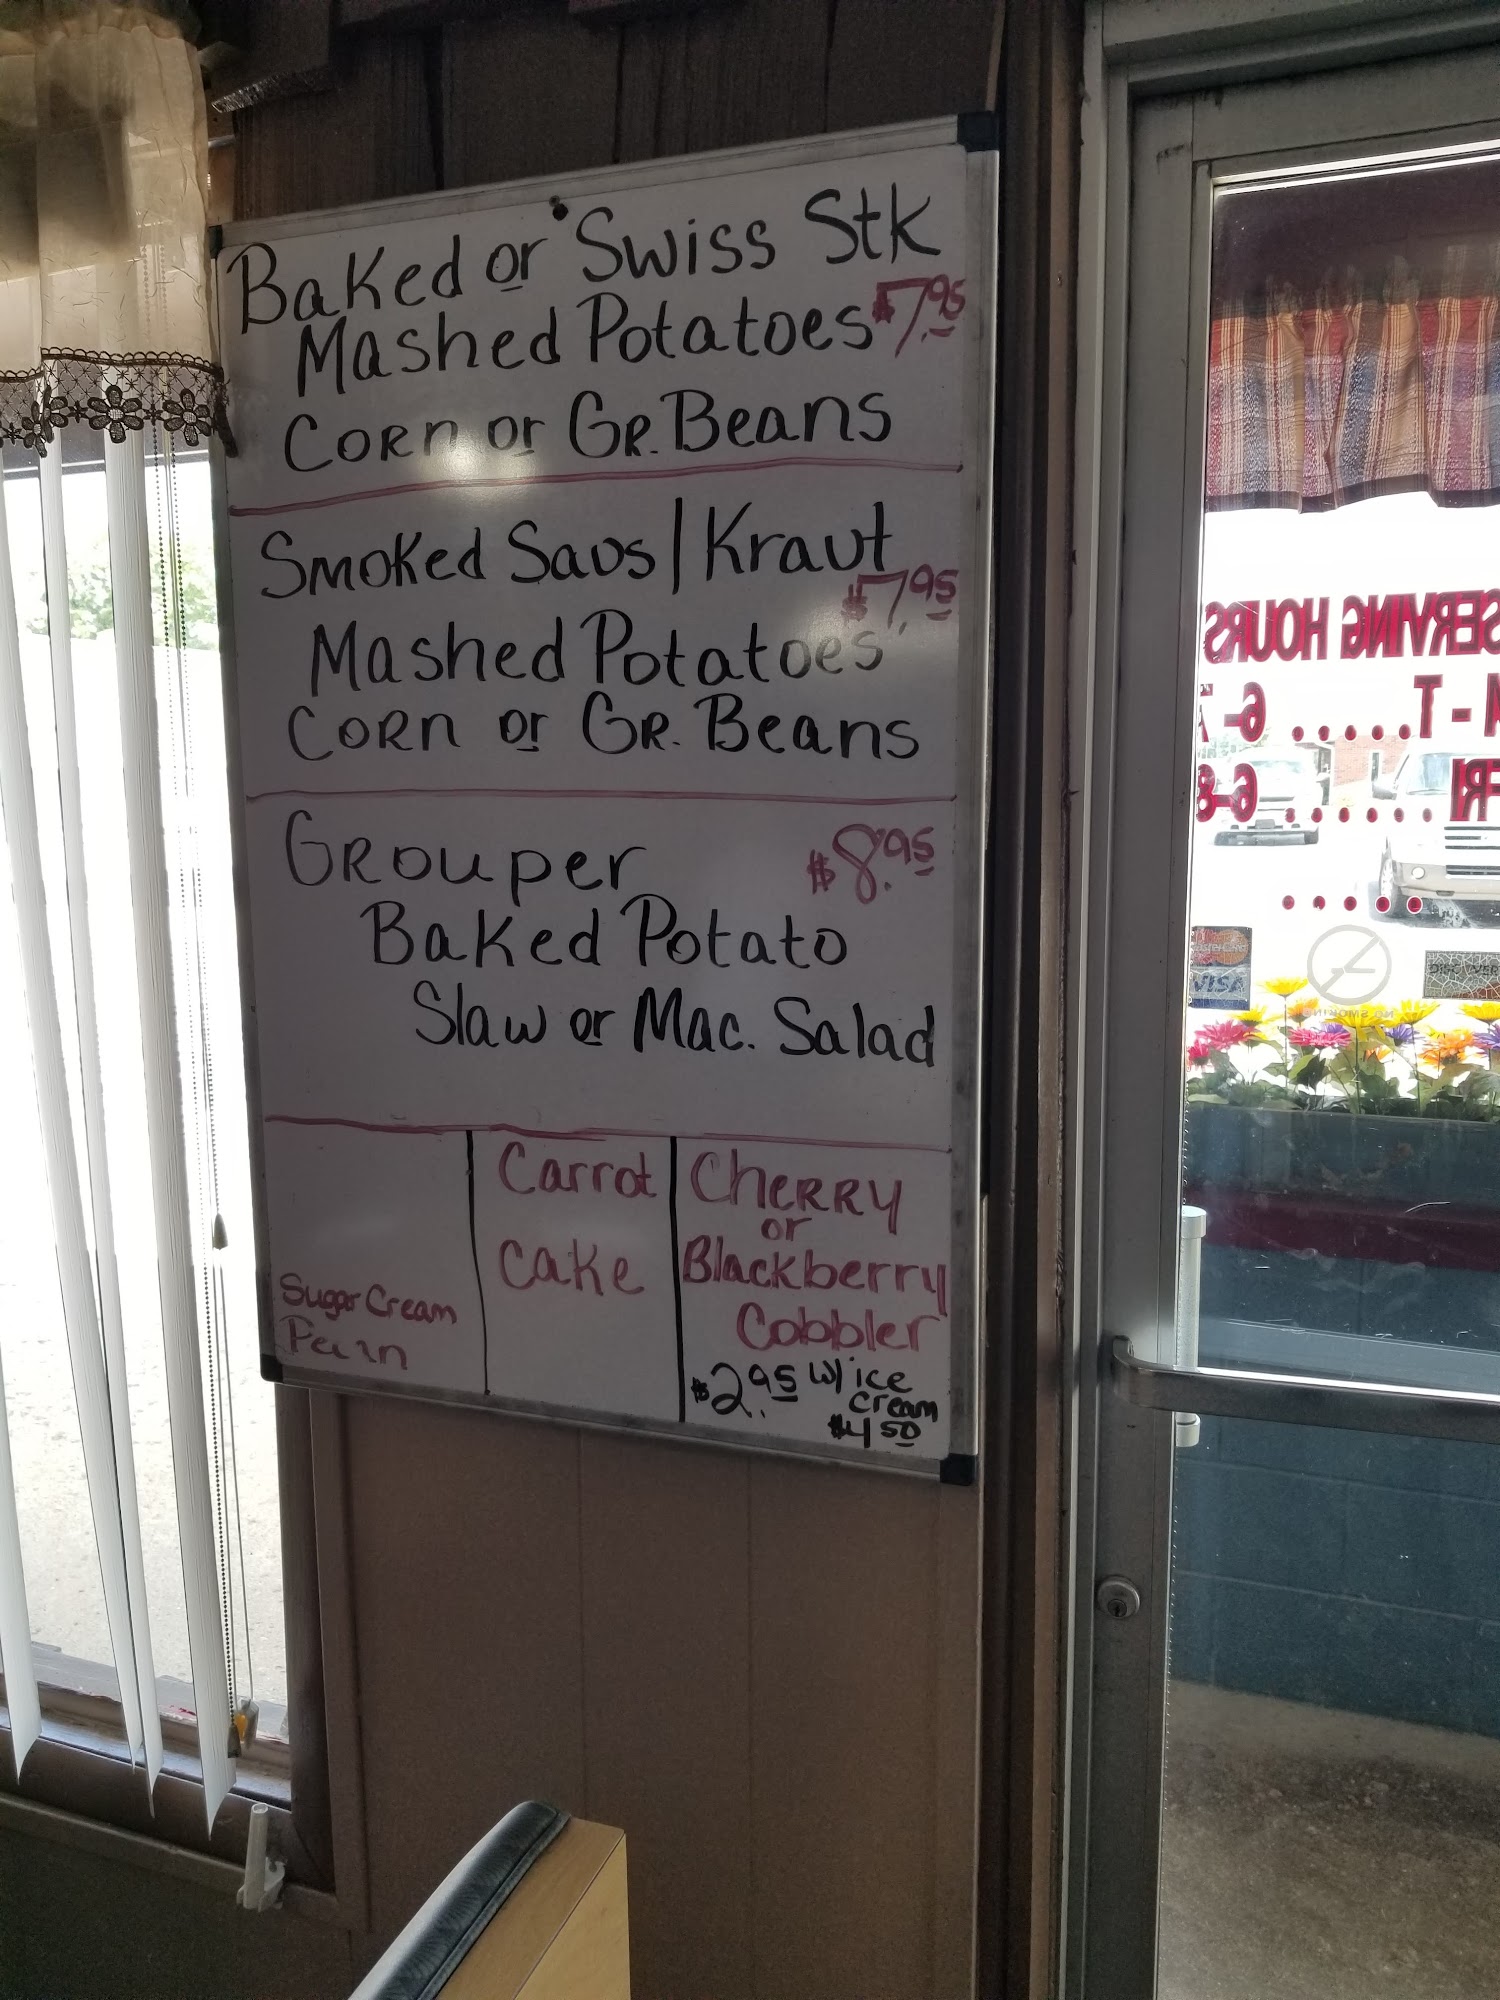 Baked or Swiss Stk
Mashed Potatoes $7.95
Corn or Gr. Beans
Smoked Saus/Kraut
$7.95
Mashed Potatoes
Corn or Gr. Beans
Grouper $8.95
Baked Potato
Slaw or Mac. Salad
Sugar Cream
Carrot
Cake
Cherry
or
Blackberry
Cobbler
$2.95 w/ice
cream
$4.50
SERVING HOURS
- T...... 6-
FRI ....... 6-8
MasterCard
VISA
DISCOVER
NO SMOKING